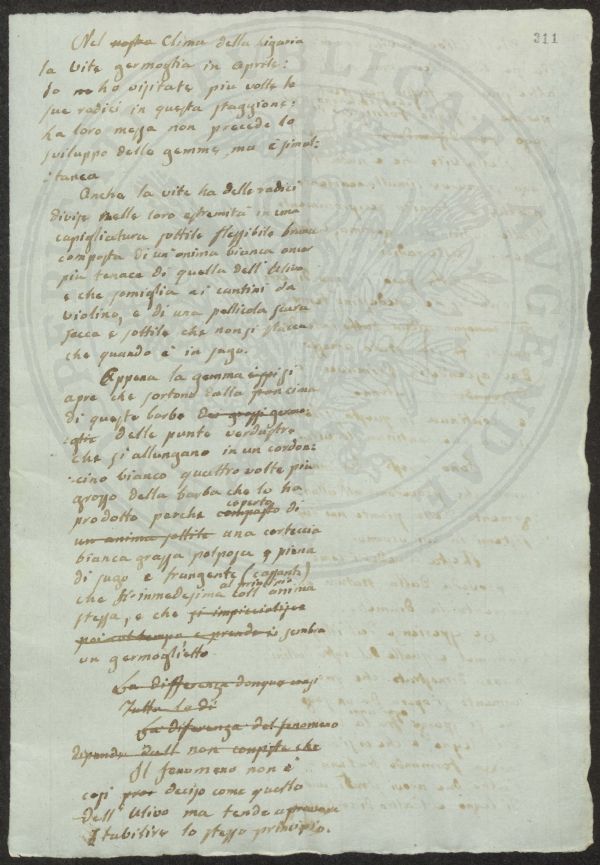 311
Nel nostro Clima della Liguria
la vite germoglia in Aprile:
Io ne ho visitate piu volte le
sue radici in questa staggione:
la loro messa non precede lo
sviluppo delle gemme, ma è simul-
-tanea
Anche la vite ha delle radici
divise nelle loro estremità in una
capigliatura sottile flessibile bruna
composta di un'anima bianca ancor
piu tenace di quella dell'Ulivo
e che somiglia ai cantini da
violino, e di una pellicola scura
secca e sottile che non si stacca
che quando è in sugo.
Appena la gemma si
apre che sortono dalla cima
di queste barbe dei grossi germo-
-gli delle punte verdastre
che si allungano in un cordon-
-cino bianco quattro volte piu
grosso della barba che lo ha
prodotto perche composto di
coperto
un anima sottile una corteccia
bianca grassa polposa e piena
di sugo e frangente (cassante)
al principio
che s'immedesima coll'anima
stessa, e che si impicciolisce
poi col tempo e prende sembra
un germoglietto
La differenza donque
Tutto lo di
La diferenza del fenomeno
dipende dall non consiste che
Il fenomeno non è
cosi deciso come quello
dell'Ulivo ma tende a provare
stabilire lo stesso principio.